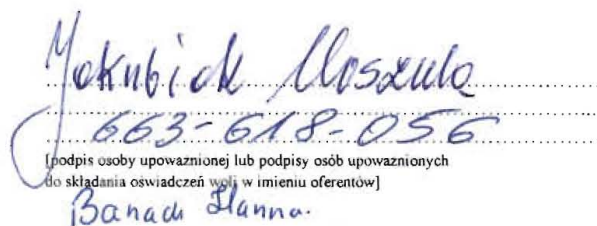 Jakubiak Urszula
663-618-056
[podpis osoby upoważnionej lub podpisy osób upoważnionych
do składania oświadczeń woli w imieniu oferentów]
Banach Hanna.